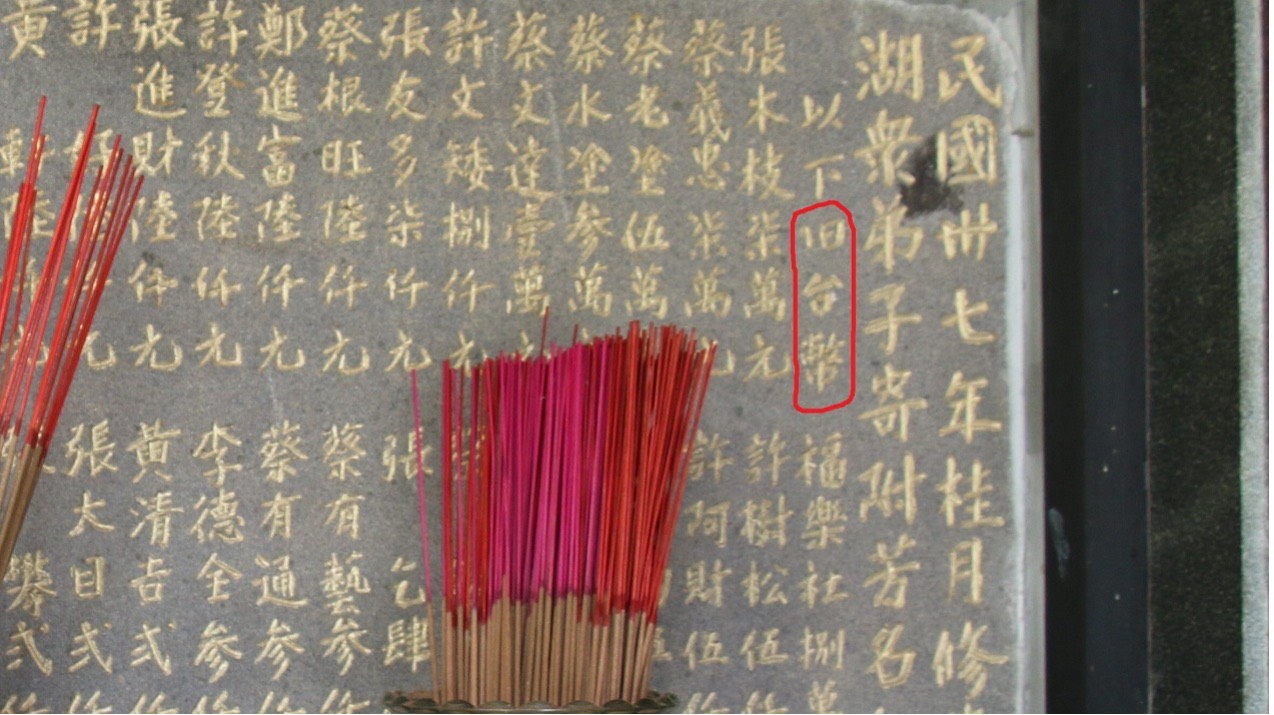 民國卅七年桂月修
湖衆弟子寄附芳名
以下旧台幣
張木枝柒萬元
蔡義忠柒萬元
蔡老塗伍萬
蔡水塗參萬
蔡文達壹萬
許文矮捌仟元
張友多柒仟元
蔡根旺陸仟元
鄭進富陸仟元
許登秋陸仟元
張進財陸仟元
許好
黃軒陸
福樂社捌萬
許樹松伍仟
許阿財伍仟
張乞肆
蔡有藝參仟
蔡有通參仟
李德全參仟
黃清吉弍仟
張大目弍仟
攀弍仟